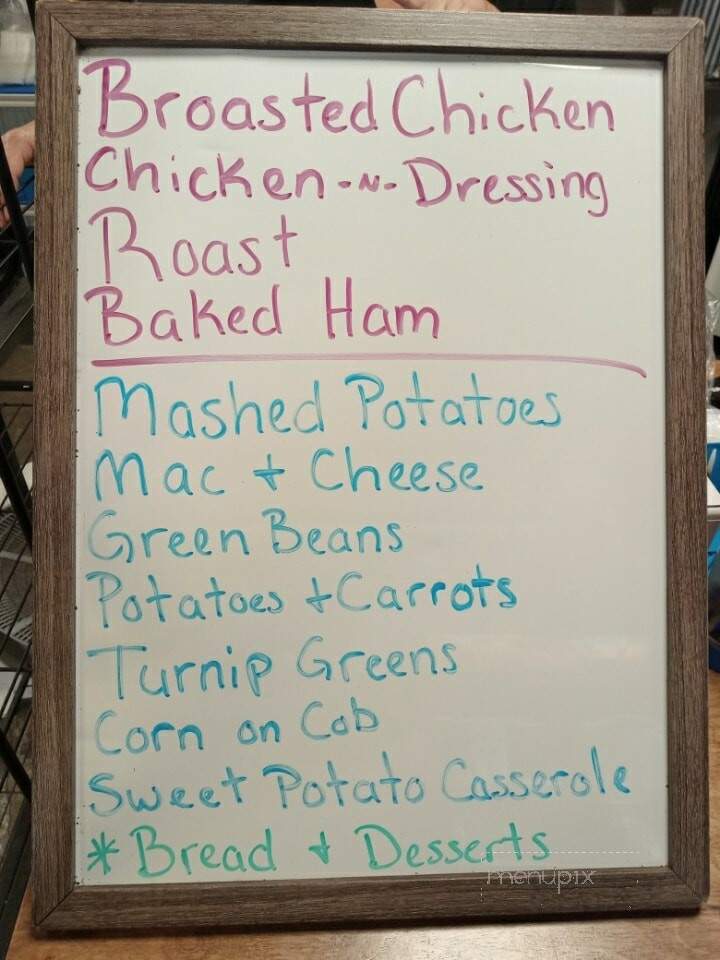 Broasted Chicken
Chicken-N-Dressing
Roast
Baked Ham
Mashed Potatoes
Mac + Cheese
Green Beans
Potatoes + Carrots
Turnip Greens
Corn on Cob
Sweet Potato Casserole
* Bread + Desserts
menupix